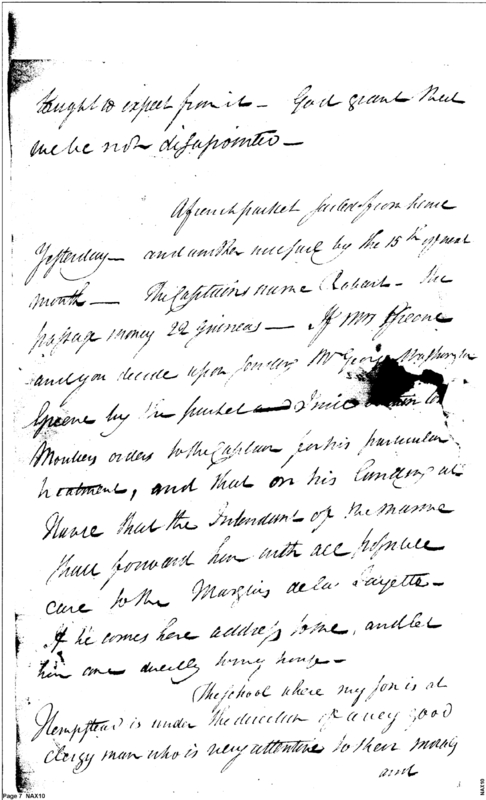 taught to expect from it – God grant that
we be not disapointed –
A french packet sailed from hence
Yesterday – and another will sail by the 15th of next
month – The Captains name Rabart – the
passage money 22 guineas – If Mrs Greene
and you decide upon sending Mr George Washington
Greene by the packet and I will
Moutiers orders to the Captain for his particular
treatment, and that on his landing at
Havre that the Intendant of the marine
shall forward him with all possible
care to the Marquis de la Fayette –
If he comes here address to me, and let
him come directly to my house –
The school where my son is at
Hempstead is under the direction of a very good
clergy man who is very attentive to their morals
and
Page 7 NAX10
NAX10